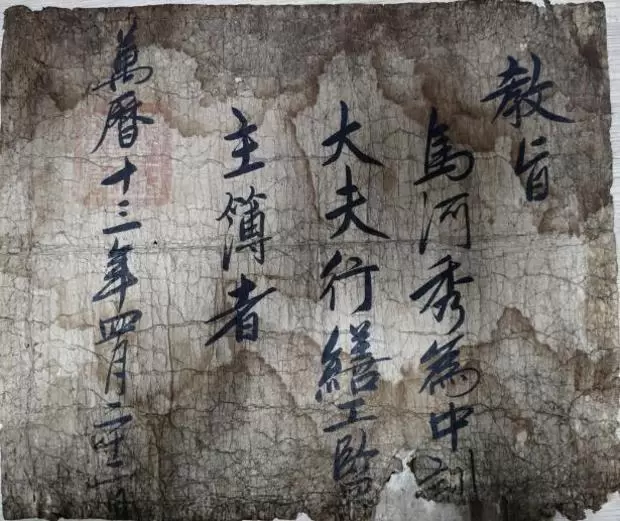 敎旨
馬河秀爲中訓
大夫行繕工監
主簿者
萬曆十三年四月二十日